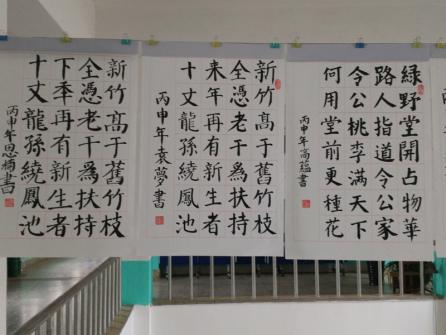 新竹高于舊竹枝
全憑老干爲扶持
下年再有新生者
十丈龍孫繞鳳池
丙申年思楠書
新竹高于舊竹枝
全憑老干爲扶持
來年再有新生者
十丈龍孫繞鳳池
丙申年袁夢書
綠野堂開占物華
路人指道令公家
令公桃李滿天下
何用堂前更種花
丙申年高蘊書